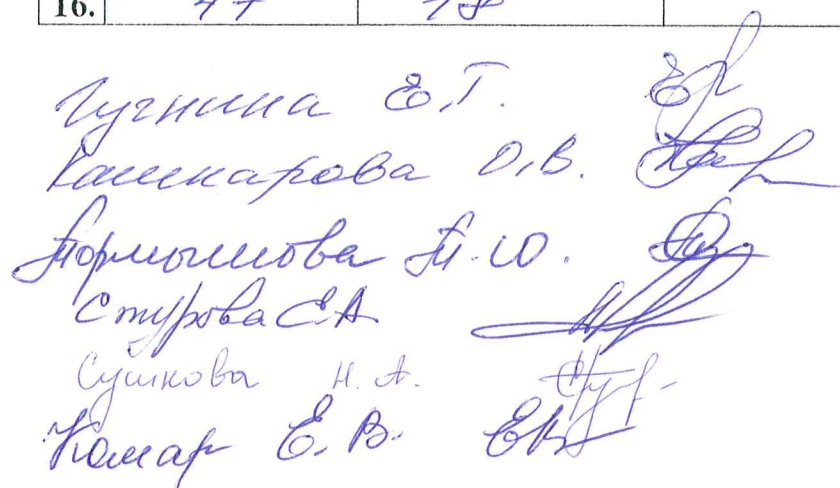 16. 47 18
Гугнина Е.Г.
Кашкарова О.В.
Тормышова Т.Ю.
Стурова Е.А.
Сушкова Н.А.
Комар Е.В.